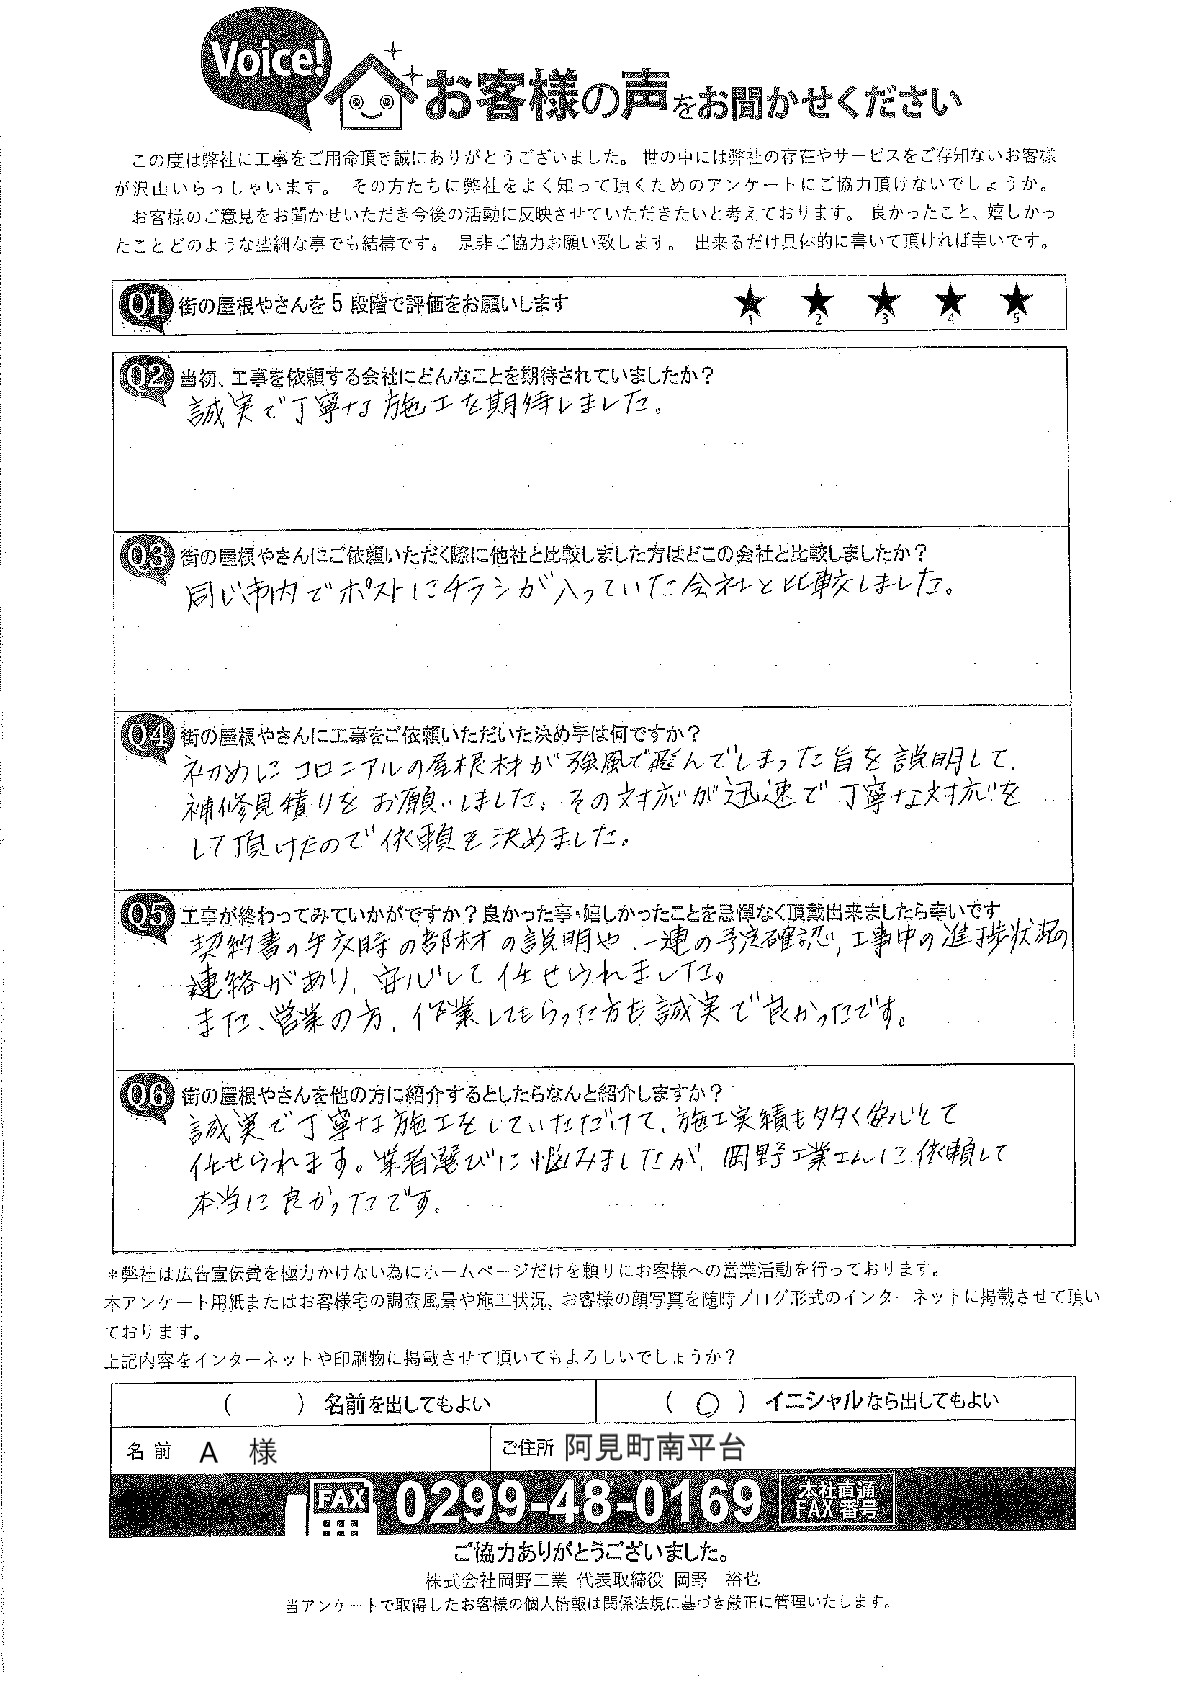 Voice!
お客様の声をお聞かせください
この度は弊社に工事をご用命頂き誠にありがとうございました。世の中には弊社の存在やサービスをご存知ないお客様
が沢山いらっしゃいます。 その方たちに弊社をよく知って頂くためのアンケートにご協力頂けないでしょうか。
お客様のご意見をお聞かせいただき今後の活動に反映させていただきたいと考えております。 良かったこと、嬉しかっ
たことどのような些細な事でも結構です。 是非ご協力お願い致します。 出来るだけ具体的に書いて頂ければ幸いです。
Q1 街の屋根やさんを5段階で評価をお願いします ★ ★ ★ ★ ★
1 2 3 4 5
Q2 当初、工事を依頼する会社にどんなことを期待されていましたか?
誠実で丁寧な施工を期待しました。
Q3 街の屋根やさんにご依頼いただく際に他社と比較しました方はどこの会社と比較しましたか?
同じ市内でポストにチラシが入っていた会社と比較しました。
Q4 街の屋根やさんに工事をご依頼いただいた決め手は何ですか?
初めにコロニアルの屋根材が強風で飛んでしまった旨を説明して、
補修見積りをお願いしました。その対応が迅速で丁寧な対応を
して頂けたので依頼を決めました。
Q5 工事が終わってみていかがですか?良かった事・嬉しかったことを忌憚なく頂戴出来ましたら幸いです
契約書の手交時の部材の説明や、一連の予定確認、工事中の進捗状況の
連絡があり、安心して任せられました。
また、営業の方、作業してもらった方も誠実で良かったです。
Q6 街の屋根やさんを他の方に紹介するとしたらなんと紹介しますか?
誠実で丁寧な施工をしていただけて、施工実績も多く安心して
任せられます。業者選びに悩みましたが、岡野工業さんに依頼して
本当に良かったです。
*弊社は広告宣伝費を極力かけない為にホームページだけを頼りにお客様への営業活動を行っております。
本アンケート用紙またはお客様宅の調査風景や施工状況、お客様の顔写真を随時ブログ形式のインターネットに掲載させて頂い
ております。
上記内容をインターネットや印刷物に掲載させて頂いてもよろしいでしょうか?
( ) 名前を出してもよい ( ○ ) イニシャルなら出してもよい
名前 A 様 ご住所 阿見町南平台
FAX 0299-48-0169 本社直通
FAX番号
ご協力ありがとうございました。
株式会社岡野工業 代表取締役 岡野 裕也
当アンケートで取得したお客様の個人情報は関係法規に基づき厳正に管理いたします。